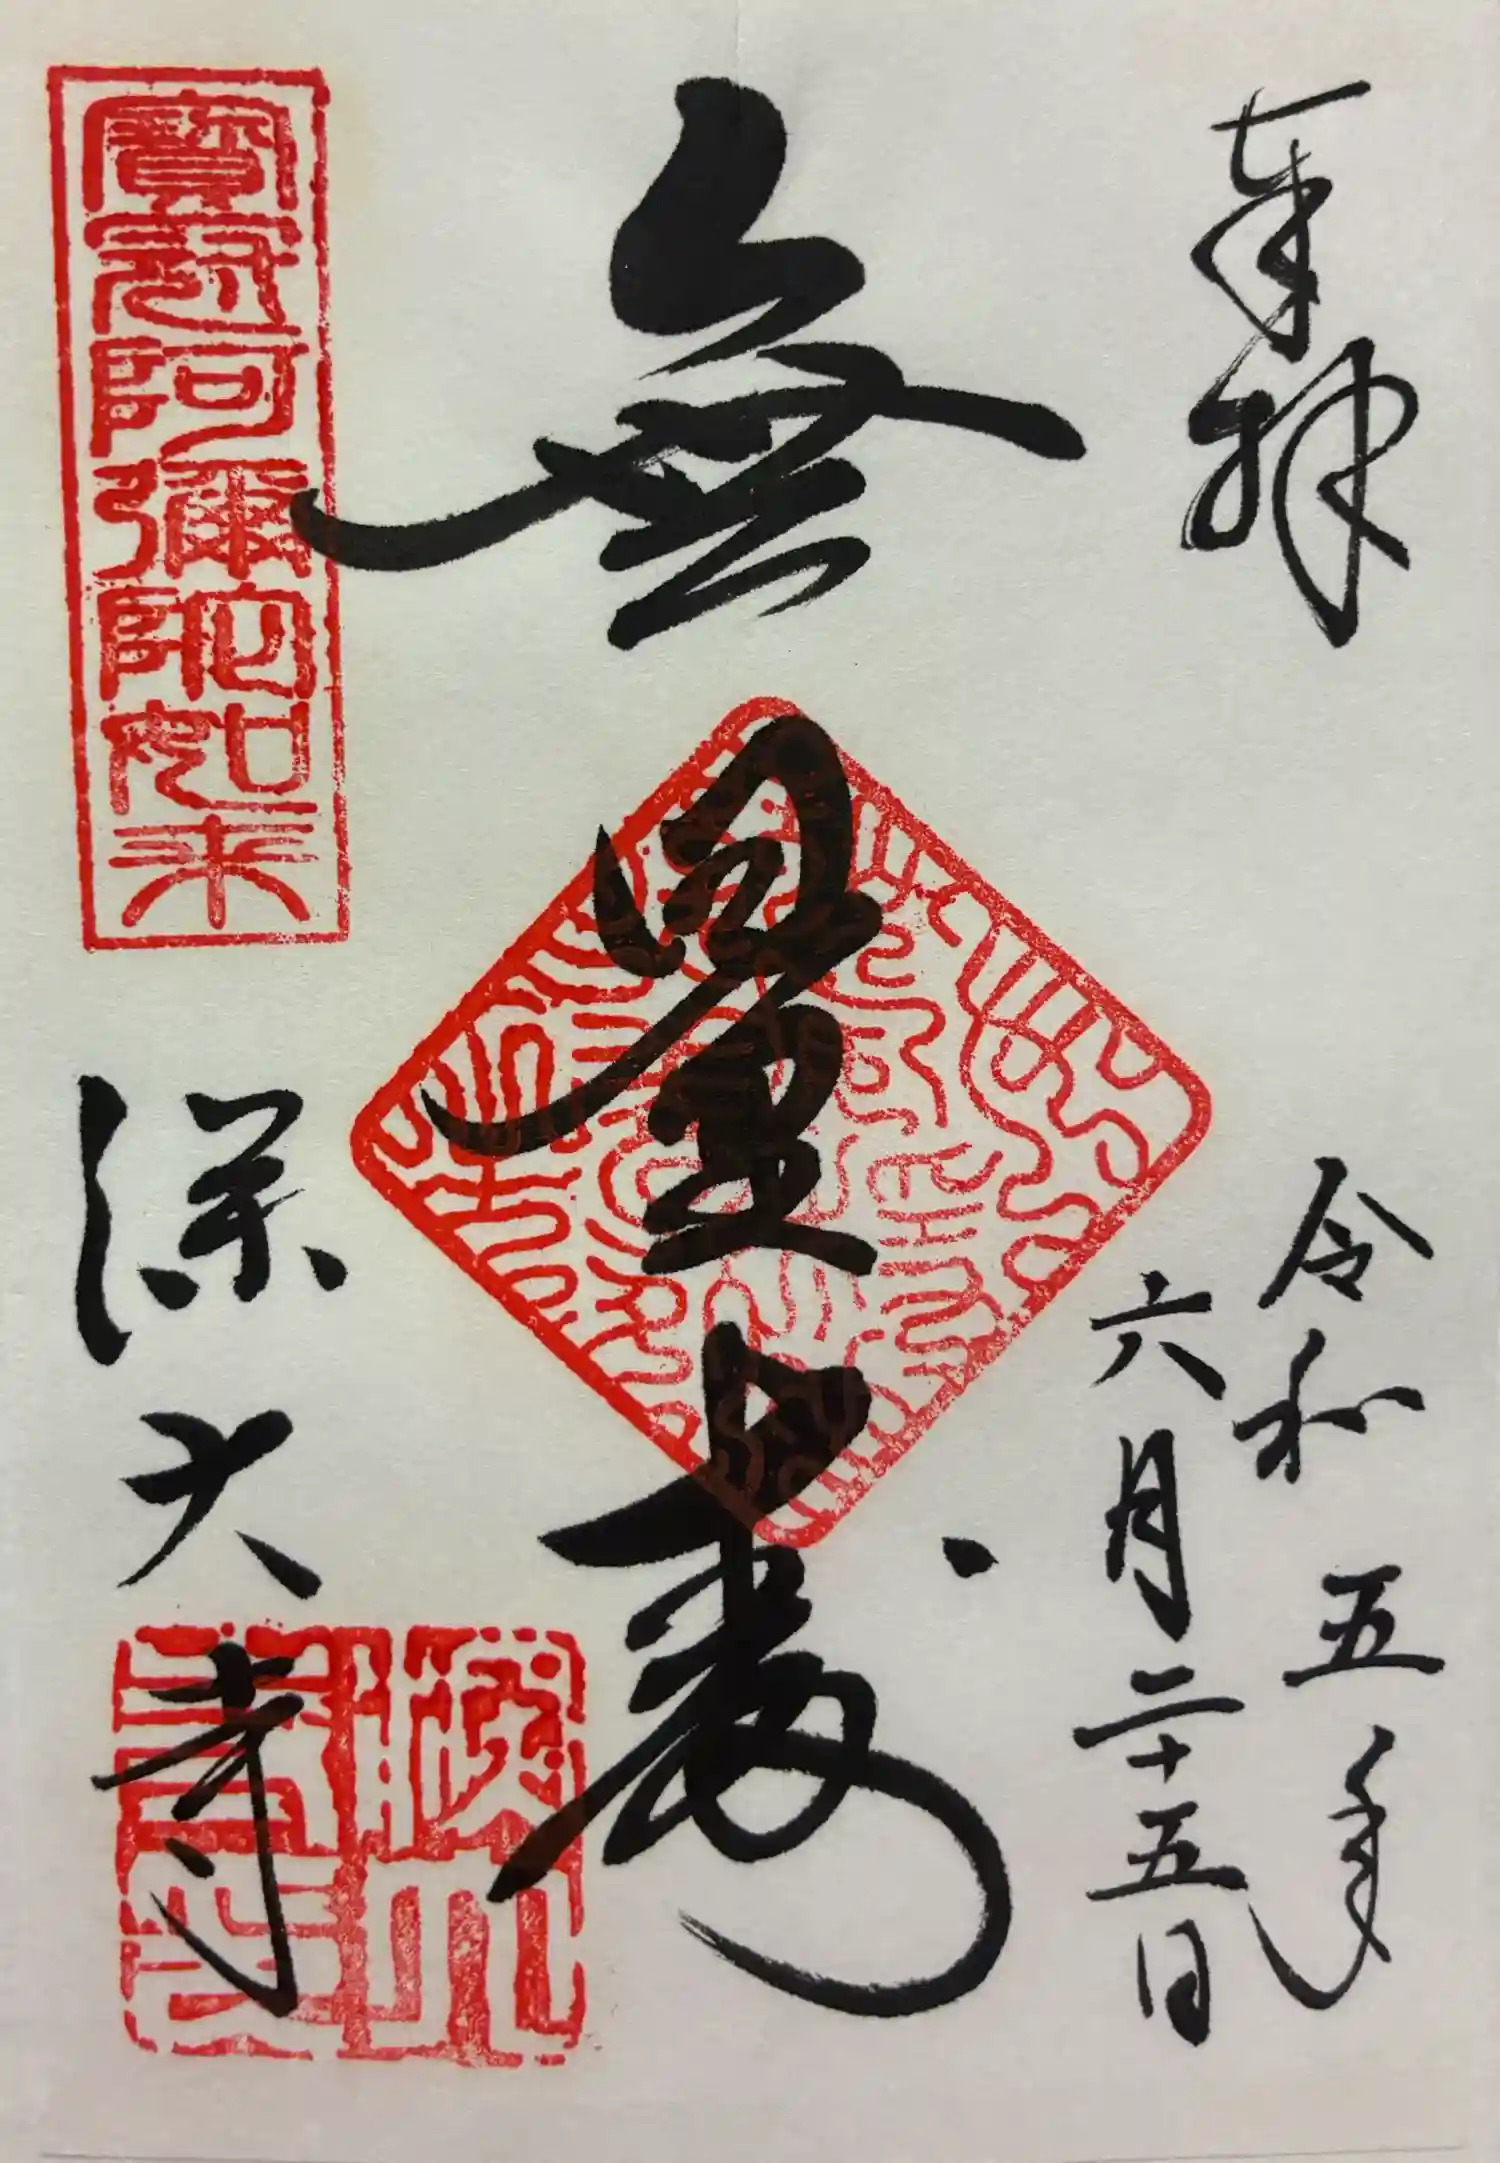 奉拝
令和五年
六月二十五日
無量壽
寶冠阿彌陀如来
深大寺